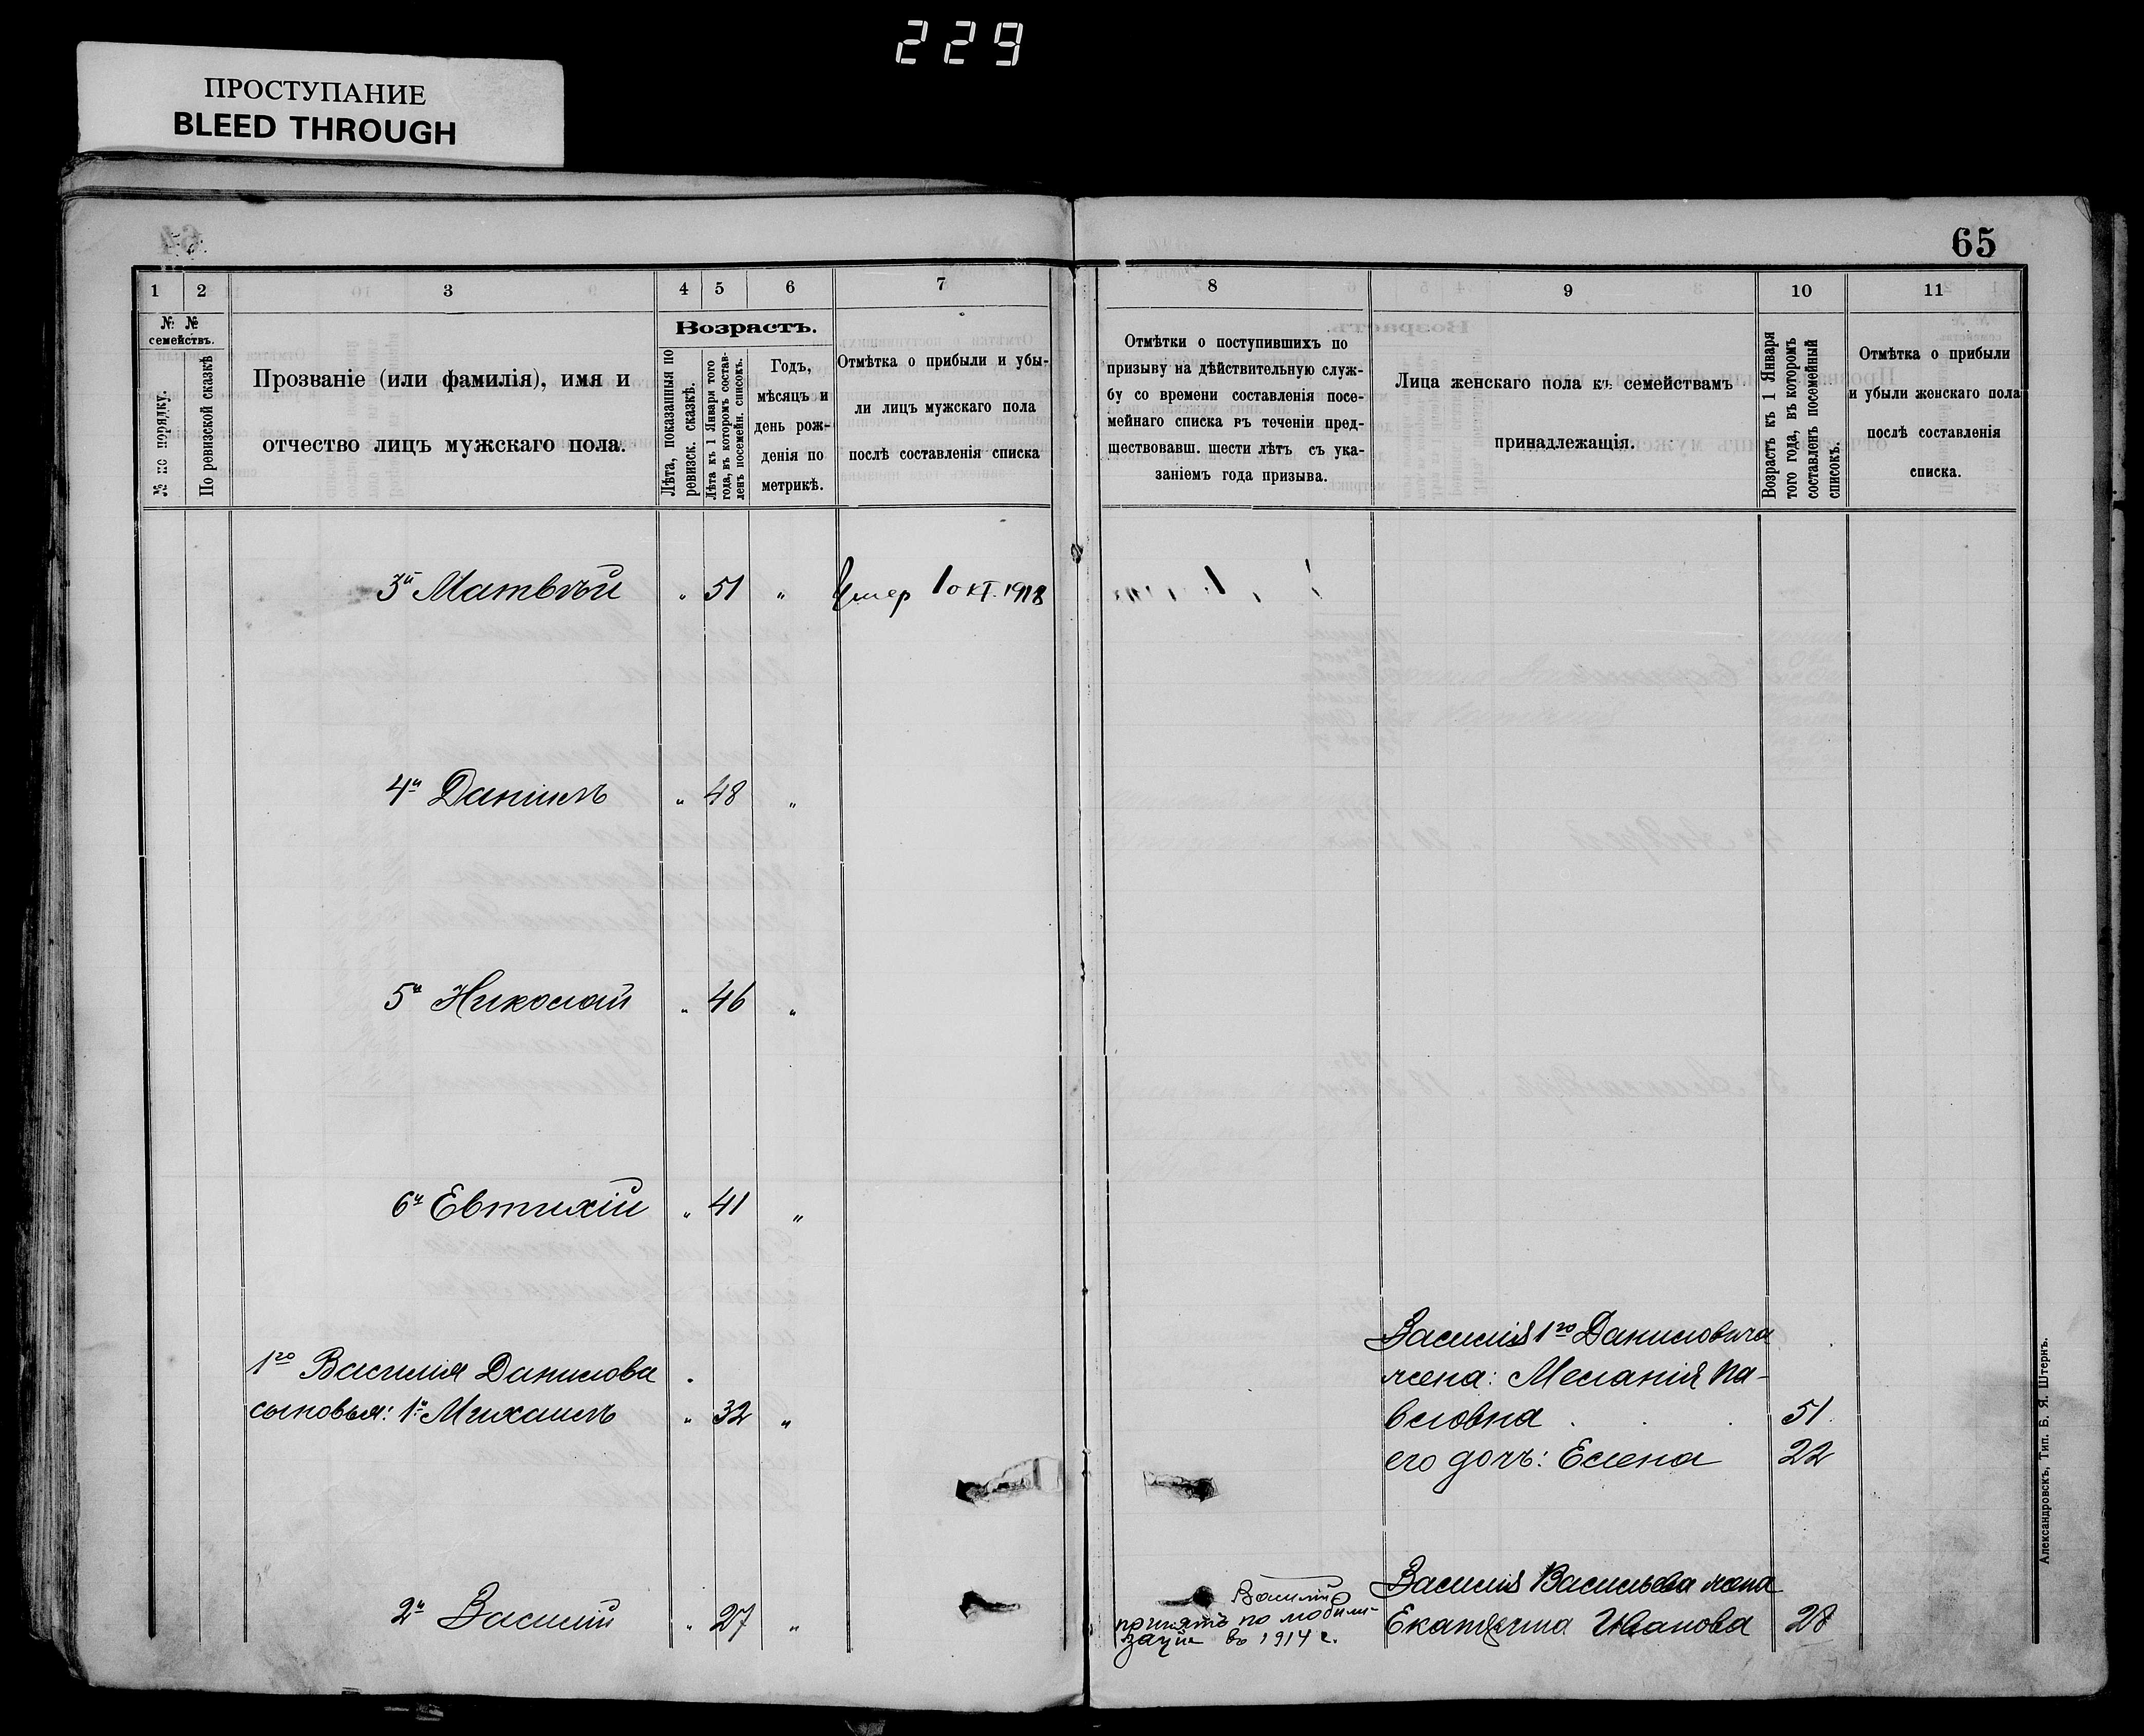 229
ПРОСТУПАНИЕ
BLEED THROUGH
65
1 2 3 4 5 6 7
№ № семействъ.
№ по порядку.
По ревизской сказкѣ
Прозваніе (или фамилія), имя и
отчество лицъ мужскаго пола.
Возрастъ.
Лѣта, показанныя по
ревизск. сказкѣ.
Лѣта къ 1 Января того
года, въ которомъ состав-
ленъ посемейн. списокъ.
Годъ,
мѣсяцъ и
день рож-
денія по
метрикѣ.
Отмѣтка о прибыли и убы-
ли лицъ мужскаго пола
послѣ составленія списка
3й Матвѣй " 51 " Умер 1 окт. 1918
4й Даніилъ " 48 "
5й Николай " 46 "
6й Евтихій " 41 "
1го Василія Данилова
сыновья: 1й Михаилъ " 32 "
2й Василій " 27 "
8 9 10 11
Отмѣтки о поступившихъ по
призыву на дѣйствительную служ-
бу со времени составленія посе-
мейнаго списка въ теченіи пред-
шествовавш. шести лѣтъ съ ука-
заніемъ года призыва.
Лица женскаго пола къ семействамъ
принадлежащія.
Возрастъ къ 1 Января
того года, въ которомъ
составленъ посемейный
списокъ.
Отмѣтка о прибыли
и убыли женскаго пола
послѣ составленія
списка.
Василія 1го Даниловича
жена: Меланія Па-
вловна 51.
его дочь: Елена 22
Василій
принятъ по мобили-
заціи въ 1914 г.
Василія Васильева жена
Екатерина Иванова 28
Александровскъ, Тип. Б. Я. Штернъ.